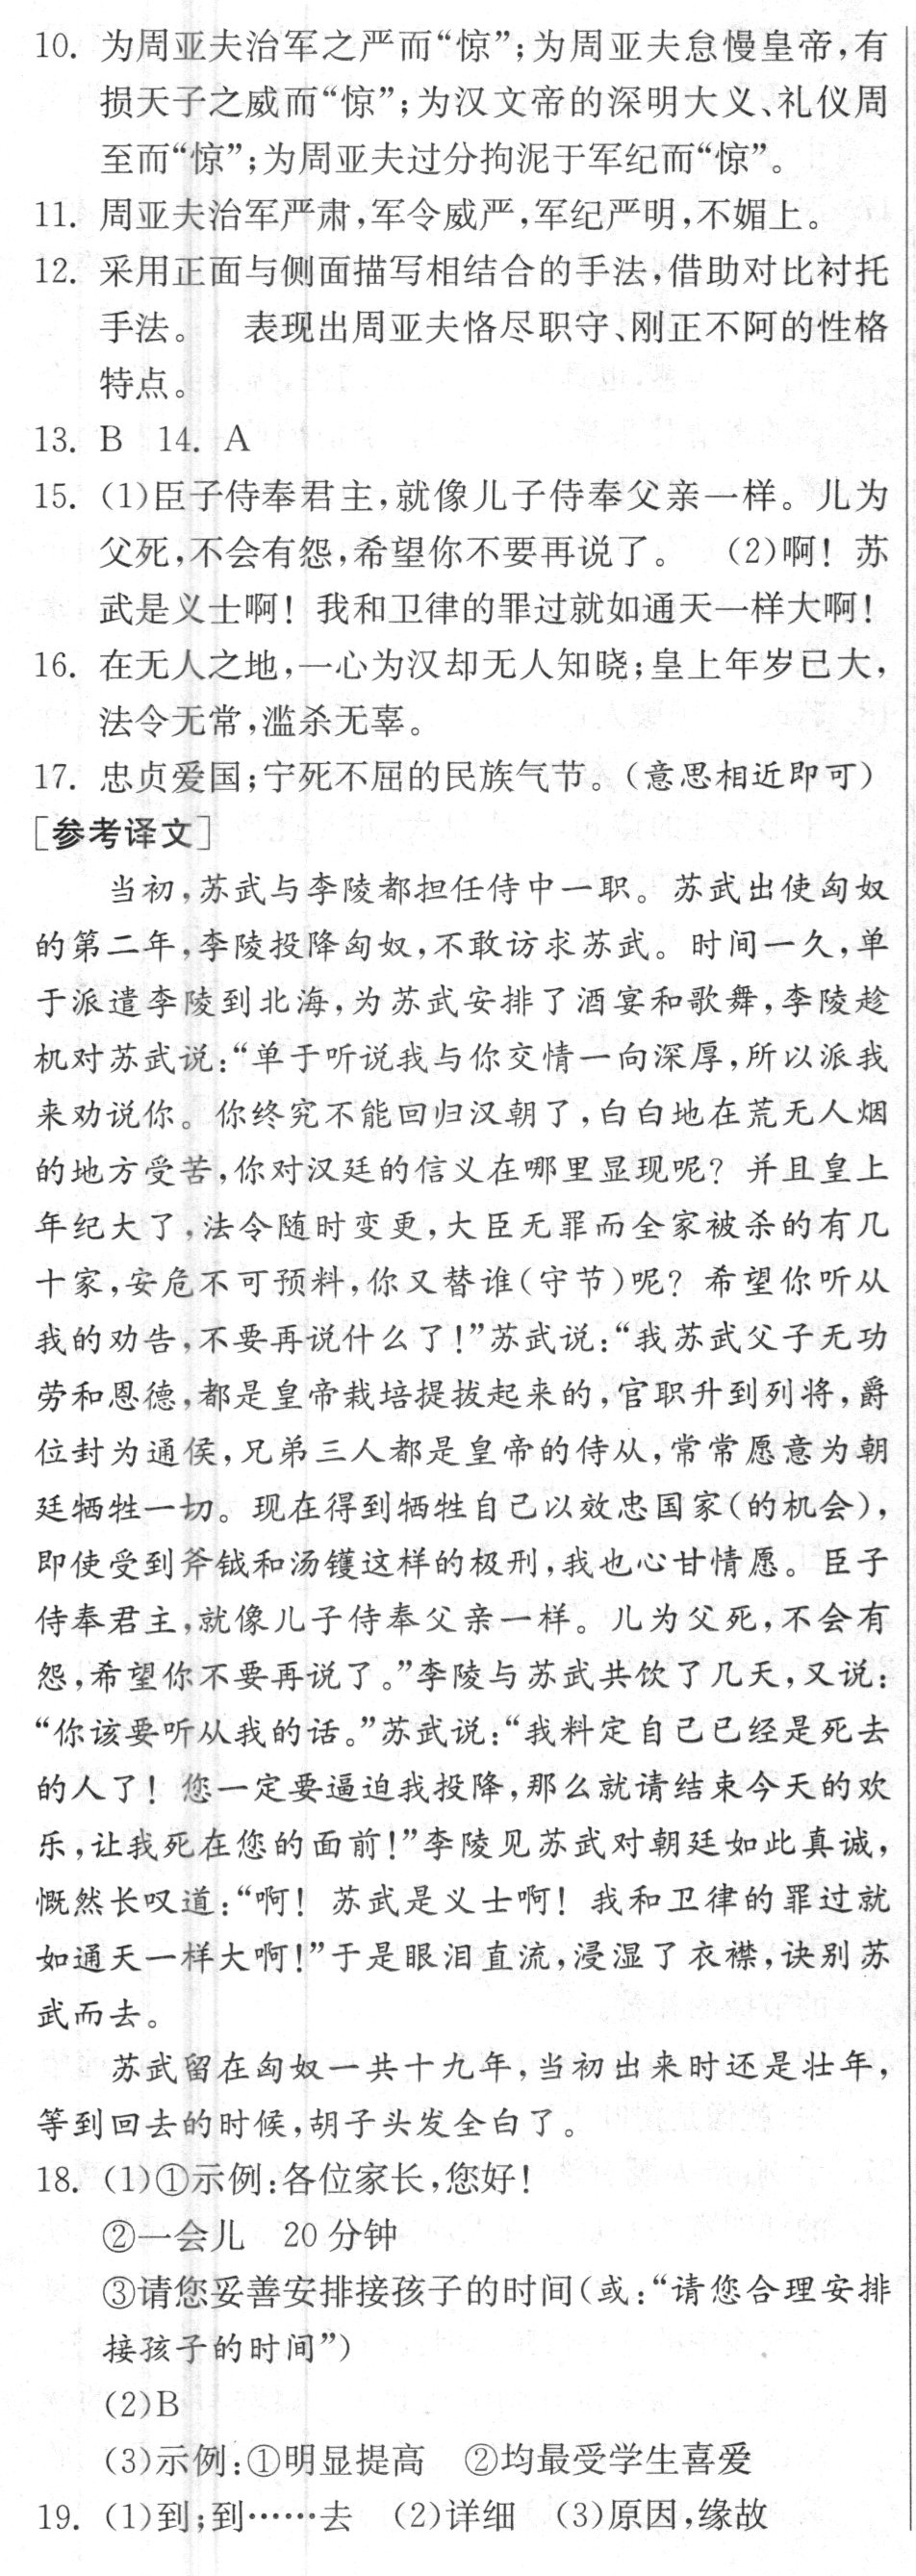 10. 为周亚夫治军之严而“惊”;为周亚夫怠慢皇帝,有
损天子之威而“惊”;为汉文帝的深明大义、礼仪周
至而“惊”;为周亚夫过分拘泥于军纪而“惊”。
11. 周亚夫治军严肃,军令威严,军纪严明,不媚上。
12. 采用正面与侧面描写相结合的手法,借助对比衬托
手法。 表现出周亚夫恪尽职守、刚正不阿的性格
特点。
13. B 14. A
15. (1)臣子侍奉君主,就像儿子侍奉父亲一样。儿为
父死,不会有怨,希望你不要再说了。 (2)啊!苏
武是义士啊!我和卫律的罪过就如通天一样大啊!
16. 在无人之地,一心为汉却无人知晓;皇上年岁已大,
法令无常,滥杀无辜。
17. 忠贞爱国;宁死不屈的民族气节。(意思相近即可)
[参考译文]
当初,苏武与李陵都担任侍中一职。苏武出使匈奴
的第二年,李陵投降匈奴,不敢访求苏武。时间一久,单
于派遣李陵到北海,为苏武安排了酒宴和歌舞,李陵趁
机对苏武说:“单于听说我与你交情一向深厚,所以派我
来劝说你。你终究不能回归汉朝了,白白地在荒无人烟
的地方受苦,你对汉廷的信义在哪里显现呢?并且皇上
年纪大了,法令随时变更,大臣无罪而全家被杀的有几
十家,安危不可预料,你又替谁(守节)呢?希望你听从
我的劝告,不要再说什么了!”苏武说:“我苏武父子无功
劳和恩德,都是皇帝栽培提拔起来的,官职升到列将,爵
位封为通侯,兄弟三人都是皇帝的侍从,常常愿意为朝
廷牺牲一切。现在得到牺牲自己以效忠国家(的机会),
即使受到斧钺和汤镬这样的极刑,我也心甘情愿。臣子
侍奉君主,就像儿子侍奉父亲一样。儿为父死,不会有
怨,希望你不要再说了。”李陵与苏武共饮了几天,又说:
“你该要听从我的话。”苏武说:“我料定自己已经是死去
的人了!您一定要逼迫我投降,那么就请结束今天的欢
乐,让我死在您的面前!”李陵见苏武对朝廷如此真诚,
慨然长叹道:“啊!苏武是义士啊!我和卫律的罪过就
如通天一样大啊!”于是眼泪直流,浸湿了衣襟,诀别苏
武而去。
苏武留在匈奴一共十九年,当初出来时还是壮年,
等到回去的时候,胡子头发全白了。
18. (1)①示例:各位家长,您好!
②一会儿 20分钟
③请您妥善安排接孩子的时间(或:“请您合理安排
接孩子的时间”)
(2)B
(3)示例:①明显提高 ②均最受学生喜爱
19. (1)到;到……去 (2)详细 (3)原因,缘故